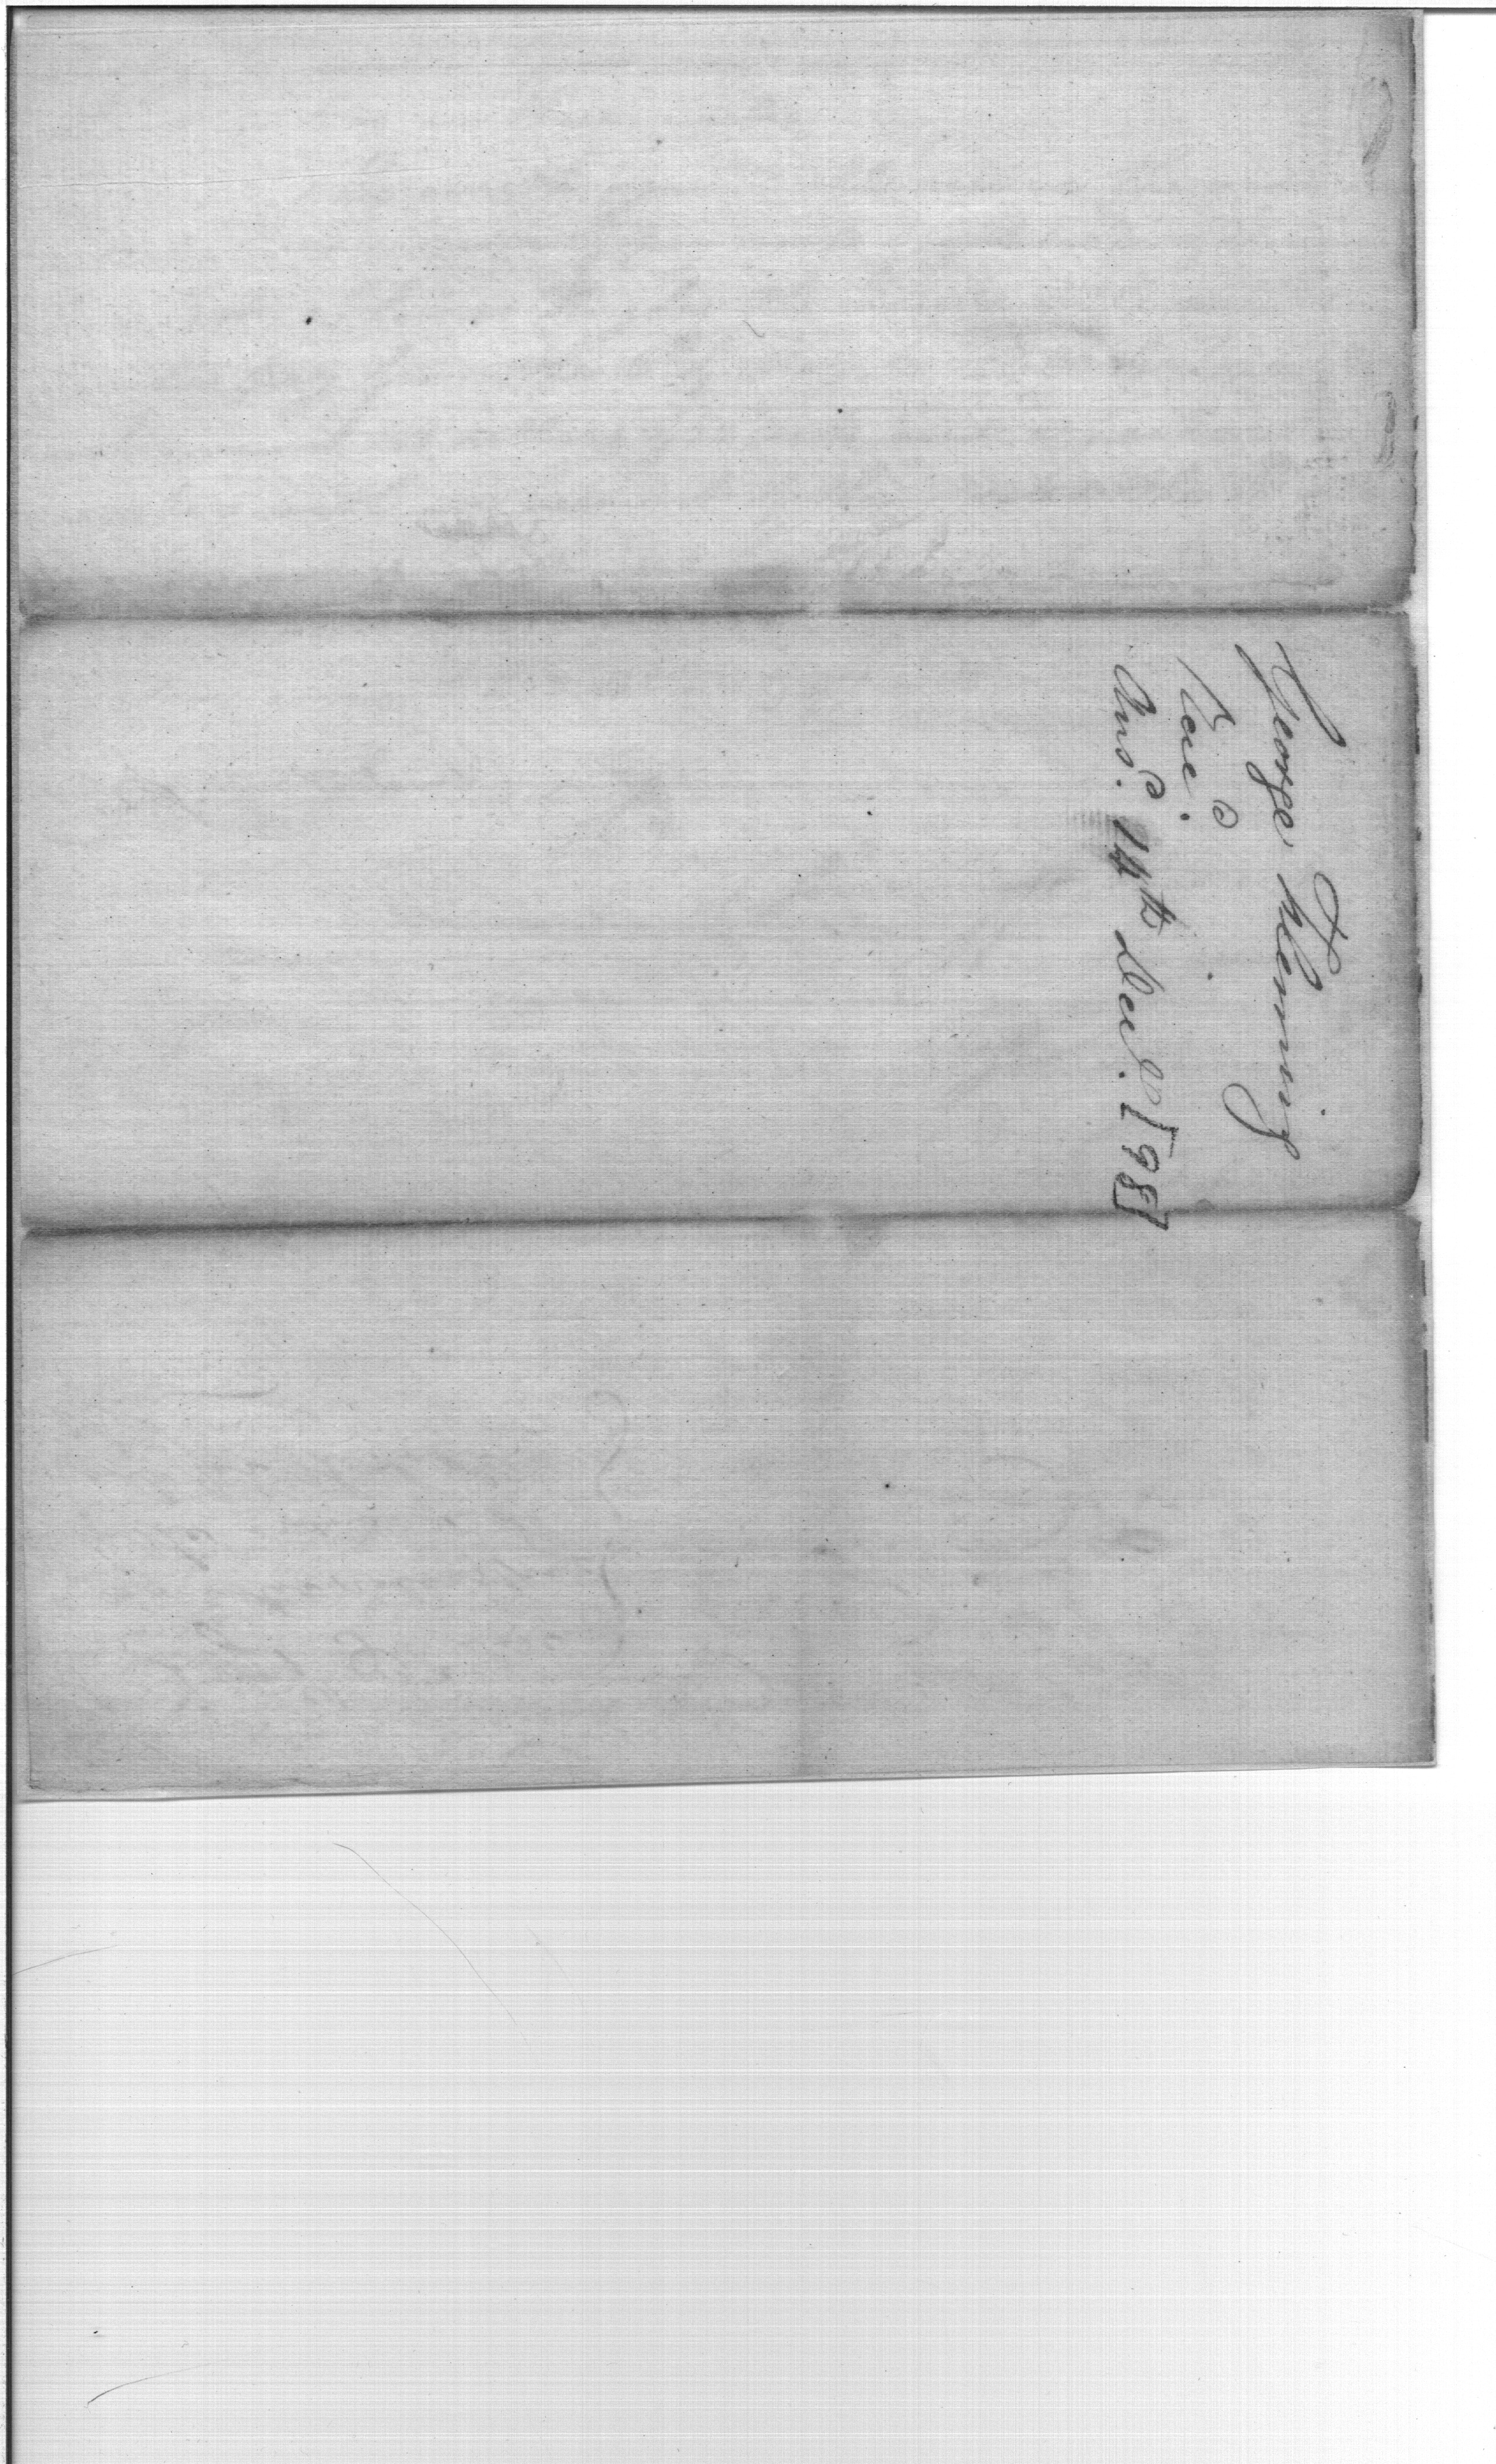 George Fleming
Rec.d
Ans.d 14th Decr. [98]